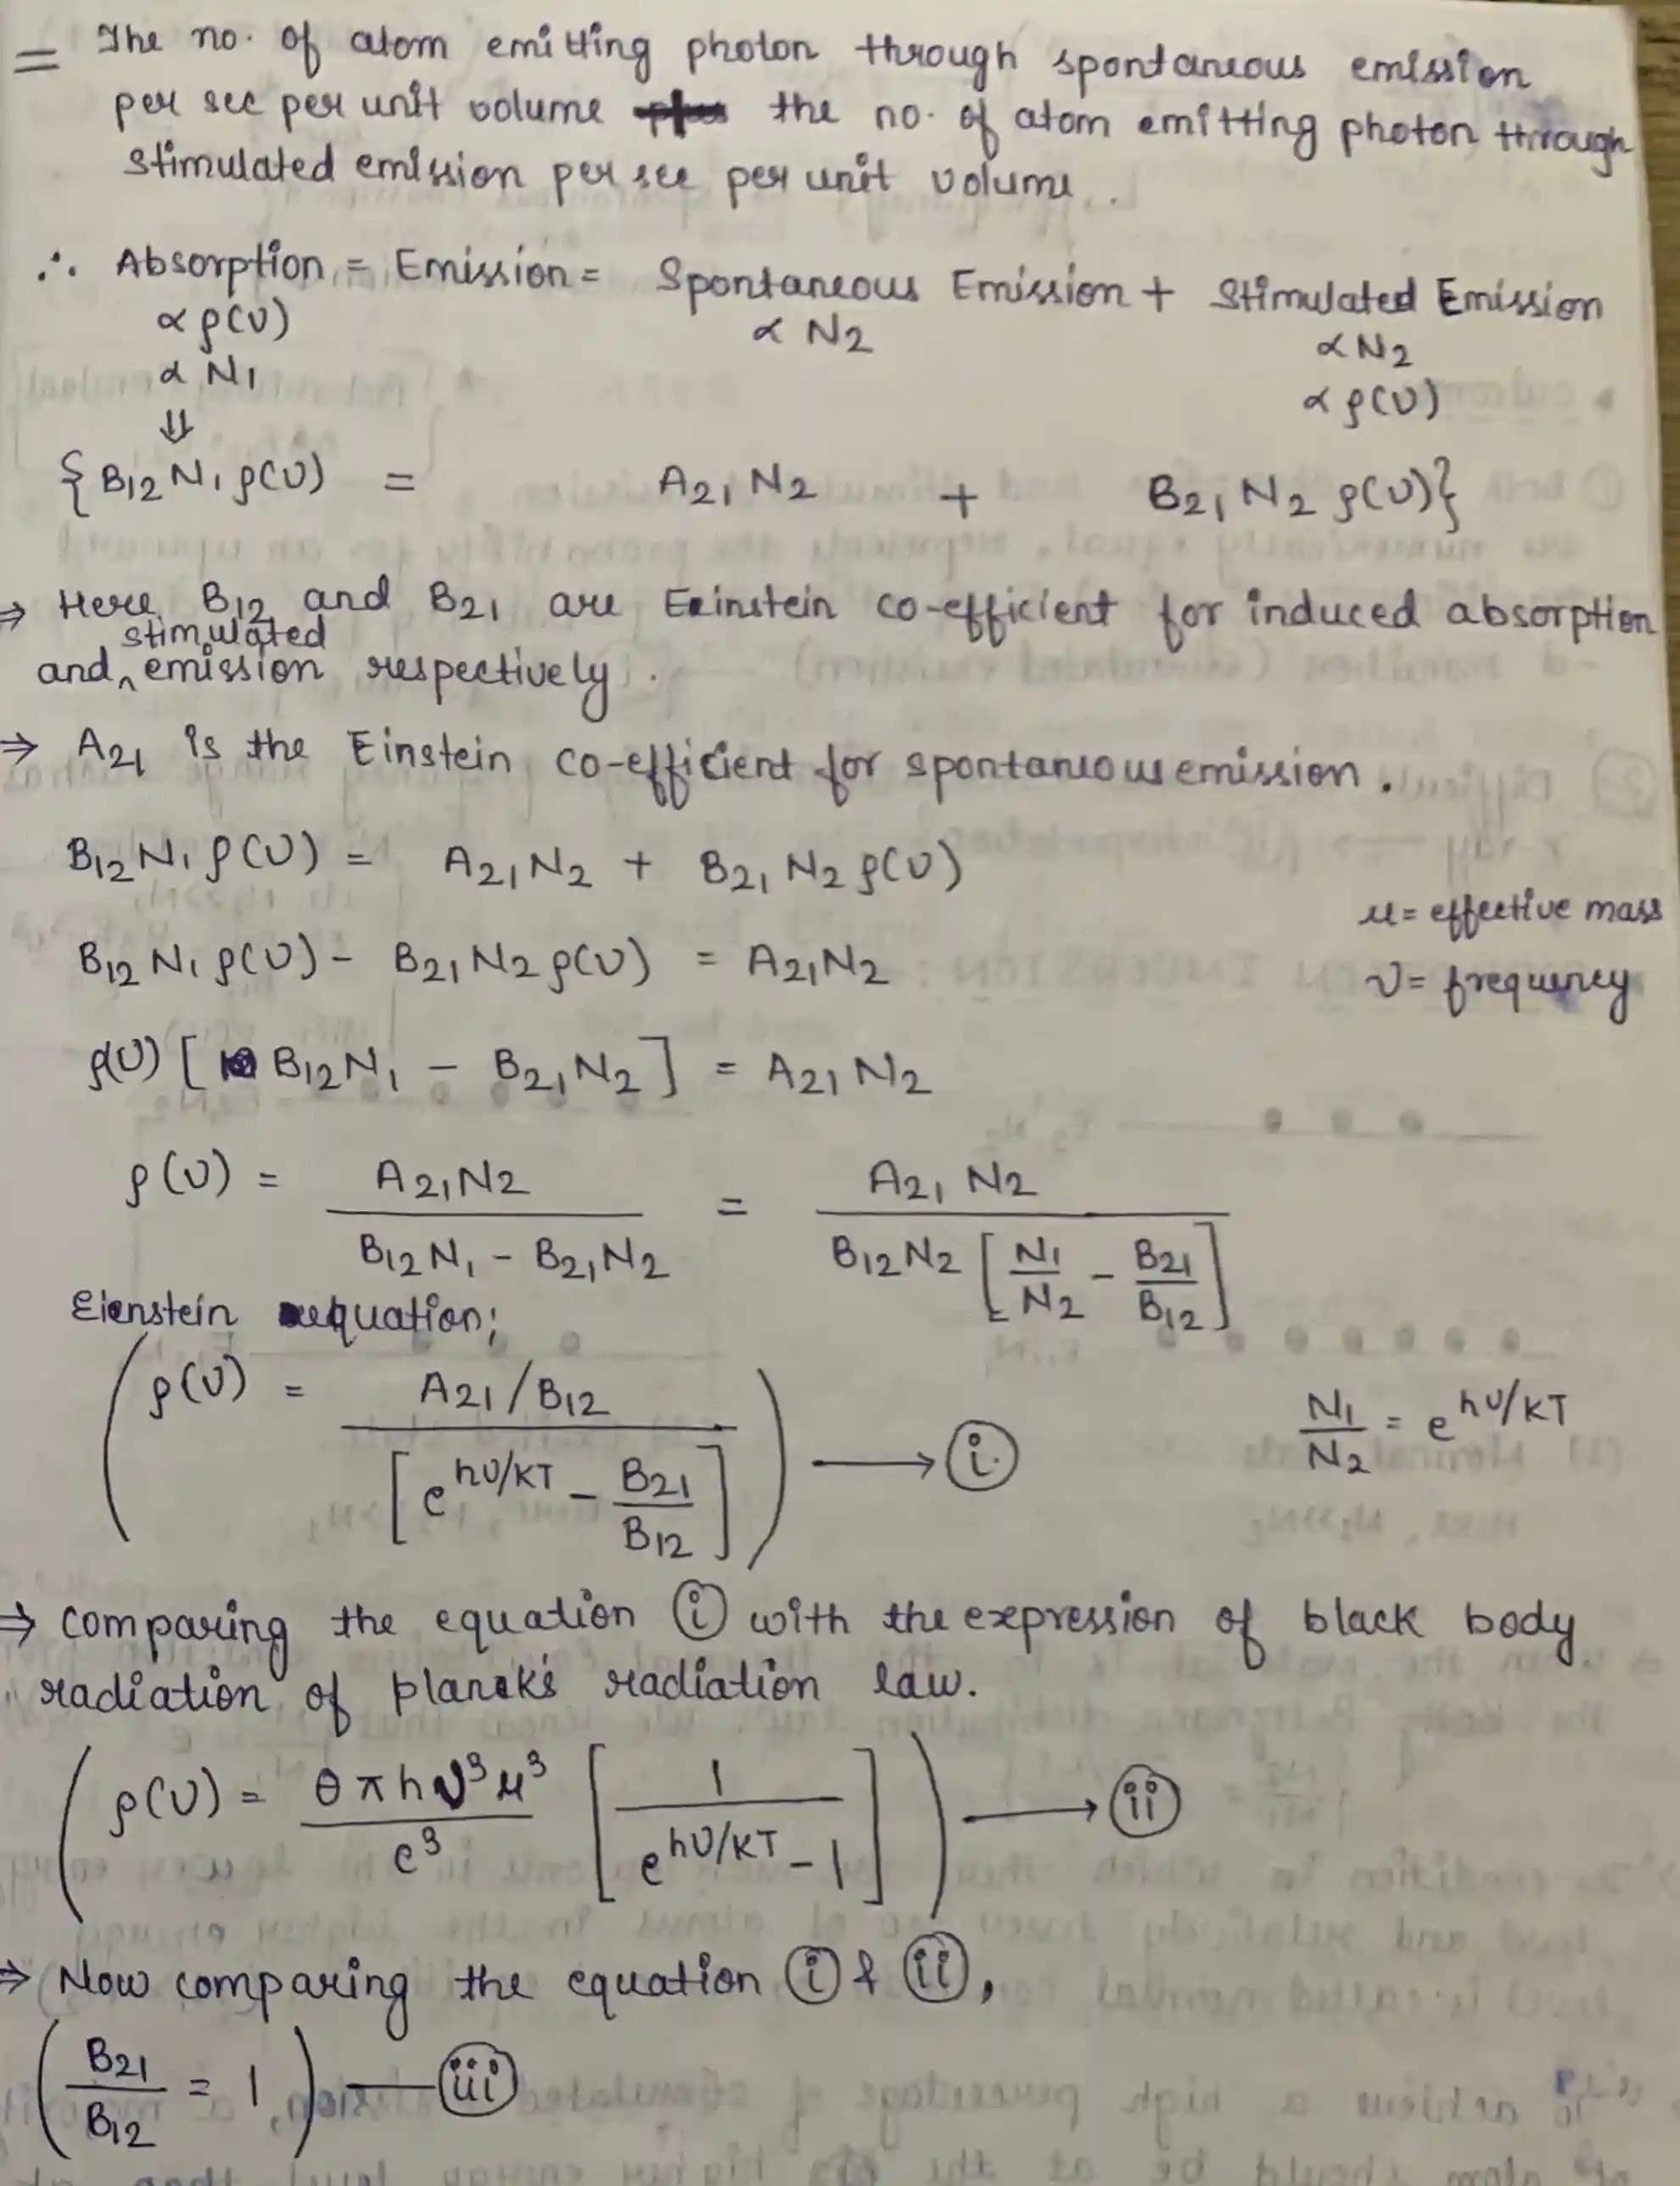 = The no. of atom emitting photon through spontaneous emission
per sec per unit volume plus the no. of atom emitting photon through
stimulated emission per sec per unit volume.
∴ Absorption = Emission = Spontaneous Emission + Stimulated Emission
∝ ρ(ν) ∝ N2 ∝ N2
∝ N1 ∝ ρ(ν)
⇓
{B12 N1 ρ(ν) = A21 N2 + B21 N2 ρ(ν)}
⇒ Here B12 and B21 are Einstein co-efficient for induced absorption
and stimulated emission respectively.
⇒ A21 is the Einstein co-efficient for spontaneous emission.
B12 N1 ρ(ν) = A21 N2 + B21 N2 ρ(ν)
μ = effective mass
B12 N1 ρ(ν) - B21 N2 ρ(ν) = A21 N2
ν = frequency
ρ(ν) [B12 N1 - B21 N2] = A21 N2
ρ(ν) = A21 N2 / B12 N1 - B21 N2 = A21 N2 / B12 N2 [N1/N2 - B21/B12]
Eienstein equation;
(ρ(ν) = A21/B12 / [e^hν/KT - B21/B12]) → (i)
N1/N2 = e^hν/KT
⇒ comparing the equation (i) with the expression of black body
radiation of planck's radiation law.
(ρ(ν) = θπhν³μ³/c³ [1/e^hν/KT - 1]) → (ii)
⇒ Now comparing the equation (i) & (ii),
(B21/B12 = 1) — (iii)